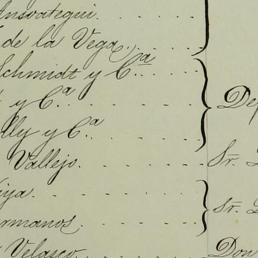 Ansoategui.
de la Vega.
Schmidt y Cª
y Cª
lly y Cª
Vallejo.
ermanos.
Velasco.
Dep
Sr.
Sr.
Don